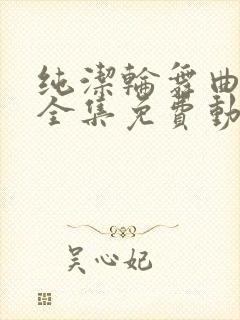 纯潔輪舞曲
全集免費動
吴心妃